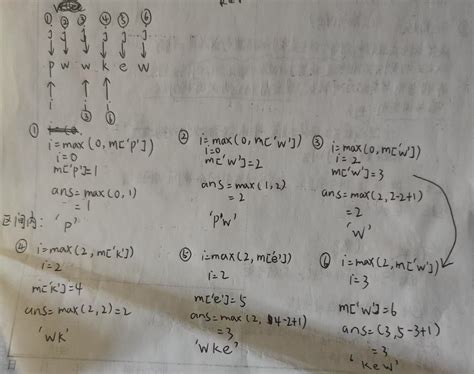 ① ② ③ ④ ⑤ ⑥
j j j j j j
p w w k e w
i i i
③ ⑥
①
i=max(0, m['p'])
i=0
m['p']=1
ans=max(0,1)
=1
区间内: 'p'
②
i=max(0, m['w'])
i=0
m['w']=2
ans=max(1,2)
=2
'pw'
③
i=max(0, m['w'])
i=2
m['w']=3
ans=max(2,2-2+1)
=2
'w'
④
i=max(2, m['k'])
i=2
m['k']=4
ans=max(2,2)=2
'wk'
⑤
i=max(2, m['e'])
i=2
m['e']=5
ans=max(2, 4-2+1)
=3
'wke'
⑥
i=max(2, m['w'])
i=3
m['w']=6
ans=(3,5-3+1)
=3
'kew'